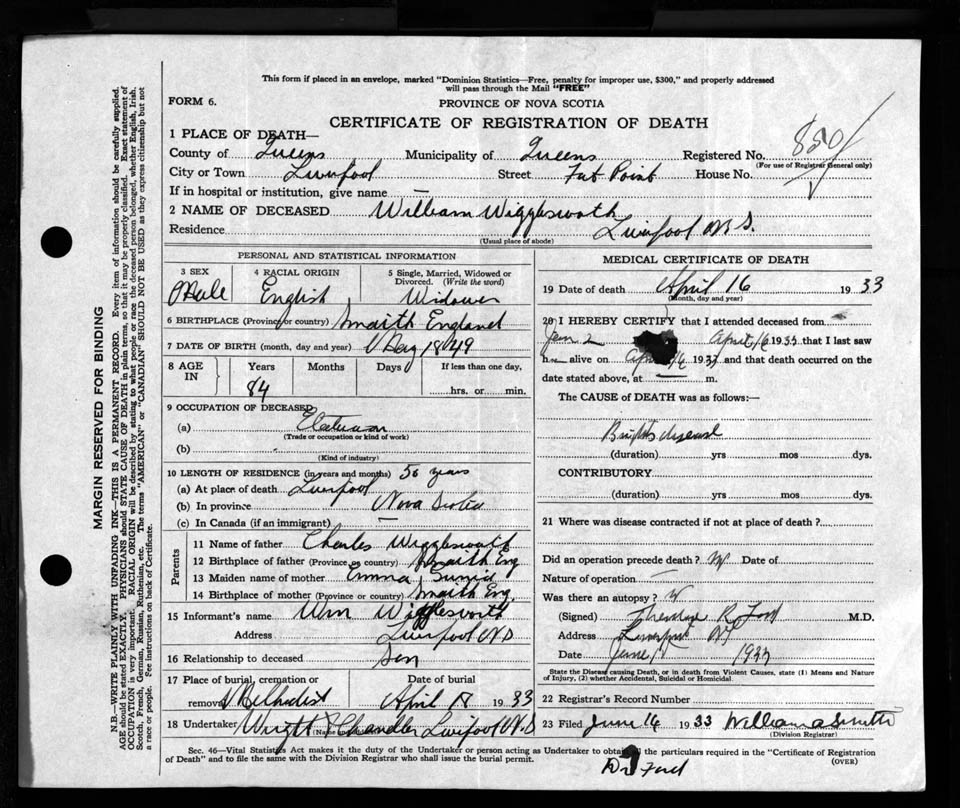 This form if placed in an envelope, marked "Dominion Statistics—Free, penalty for improper use, $300," and properly addressed
will pass through the Mail "FREE"
FORM 6.
PROVINCE OF NOVA SCOTIA
CERTIFICATE OF REGISTRATION OF DEATH
1 PLACE OF DEATH—
County of Queens Municipality of Queens Registered No. 850
(For use of Registrar General only)
City or Town Liverpool Street Fat Point House No.
If in hospital or institution, give name —
2 NAME OF DECEASED William Wigglesworth
Residence Liverpool N.S.
(Usual place of abode)
PERSONAL AND STATISTICAL INFORMATION
3 SEX 4 RACIAL ORIGIN 5 Single, Married, Widowed or Divorced. (Write the word)
Male English Widower
6 BIRTHPLACE (Province or country) Snaith England
7 DATE OF BIRTH (month, day and year) May 1849
8 AGE IN Years Months Days If less than one day,
84 hrs. or min.
9 OCCUPATION OF DECEASED
(a) Electrician
(Trade or occupation or kind of work)
(b)
(Kind of industry)
10 LENGTH OF RESIDENCE (in years and months) 50 years
(a) At place of death Liverpool
(b) In province Nova Scotia
(c) In Canada (if an immigrant) —
Parents
11 Name of father Charles Wigglesworth
12 Birthplace of father (Province or country) Snaith Eng
13 Maiden name of mother Emma
14 Birthplace of mother (Province or country) Snaith Eng.
15 Informant's name Wm Wigglesworth
Address Liverpool N.S
16 Relationship to deceased Son
17 Place of burial, cremation or removal Date of burial
Methodist April 18 1933
18 Undertaker Wright & Chandler Liverpool N.S
(Name and address)
MEDICAL CERTIFICATE OF DEATH
19 Date of death April 16 1933
(Month, day and year)
20 I HEREBY CERTIFY that I attended deceased from
Jan 2 April 16 1933 that I last saw
h alive on April 16 1933 and that death occurred on the
date stated above, at m.
The CAUSE of DEATH was as follows:
Brights disease
(duration) yrs mos dys.
CONTRIBUTORY
(duration) yrs mos dys.
21 Where was disease contracted if not at place of death?
Did an operation precede death? Date of
Nature of operation —
Was there an autopsy?
(Signed) R. Ford M.D.
Address Liverpool NS
Date June 1933
State the Disease causing Death, or in death from Violent Causes, state (1) Means and Nature of Injury, (2) whether Accidental, Suicidal or Homicidal.
22 Registrar's Record Number
23 Filed June 14 1933 William a Smith
(Division Registrar)
Sec. 46—Vital Statistics Act makes it the duty of the Undertaker or person acting as Undertaker to obtain the particulars required in the "Certificate of Registration
of Death" and to file the same with the Division Registrar who shall issue the burial permit.
(OVER)
Dr Ford
MARGIN RESERVED FOR BINDING
N.B.—WRITE PLAINLY WITH UNFADING INK—THIS IS A PERMANENT RECORD. Every item of information should be carefully supplied.
AGE should be stated EXACTLY. PHYSICIANS should STATE CAUSE OF DEATH in plain terms, so that it may be properly classified. Exact statement of
OCCUPATION is very important. RACIAL ORIGIN will be described by stating to what people or race the deceased person belonged, whether English, Irish,
Scotch, French, German, Russian, Ruthenian, etc. The terms "AMERICAN" or "CANADIAN" SHOULD NOT BE USED as they express citizenship but not
a race or people. See instructions on back of Certificate.